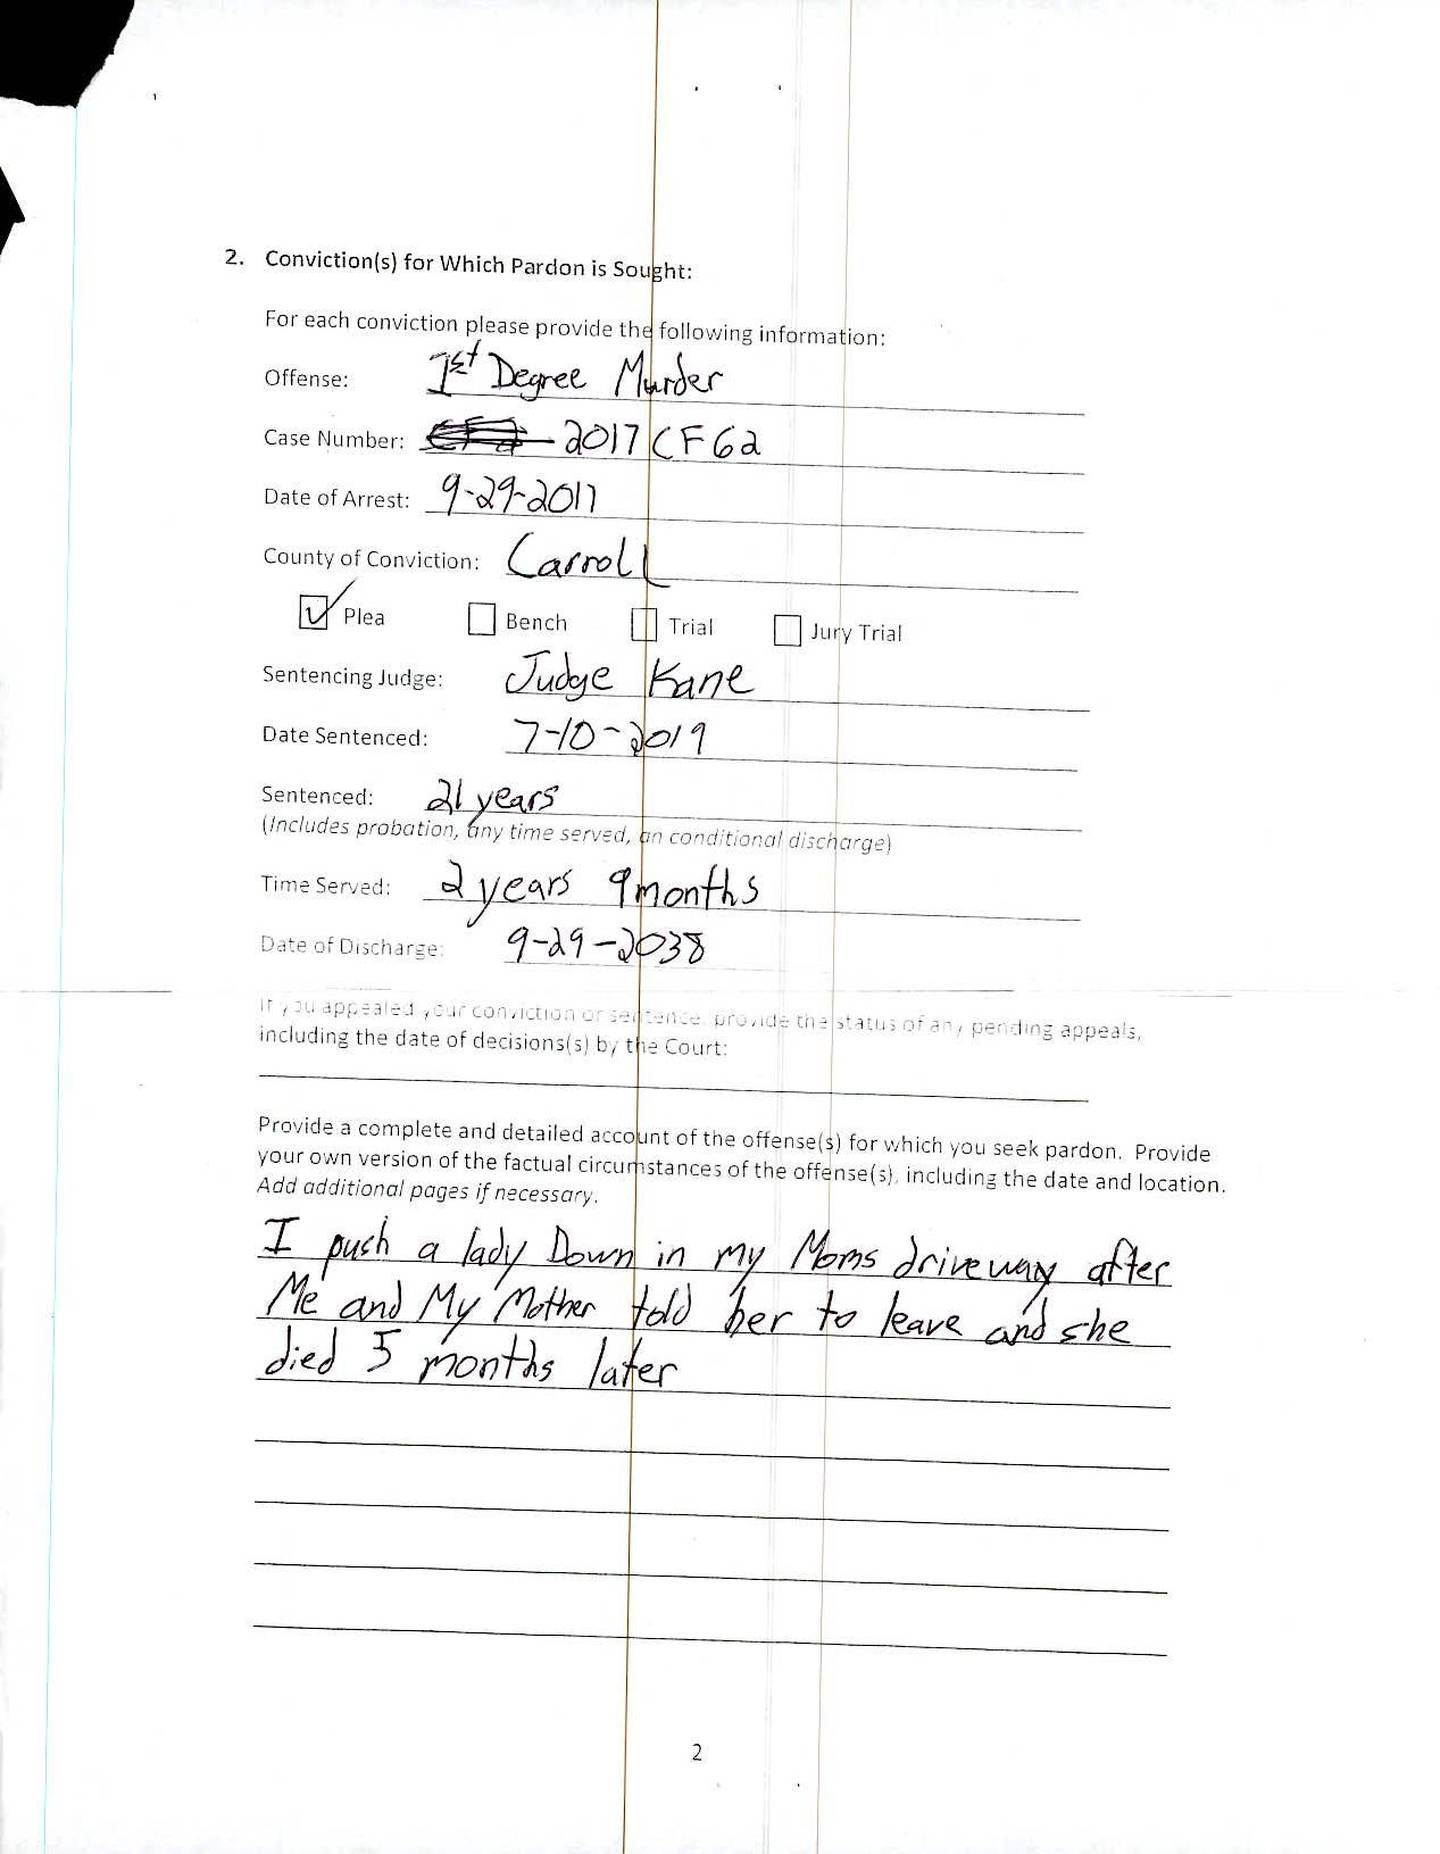 2. Conviction(s) for Which Pardon is Sought:
For each conviction please provide the following information:
Offense: 1st Degree Murder
Case Number: 2017 CF 62
Date of Arrest: 9-29-2017
County of Conviction: Carroll
Plea Bench Trial Jury Trial
Sentencing Judge: Judge Kane
Date Sentenced: 7-10-2019
Sentenced: 21 years
(Includes probation, any time served, an conditional discharge)
Time Served: 2 years 9 months
Date of Discharge: 9-29-2038
If you appealed your conviction or sentence, provide the status of any pending appeals,
including the date of decisions(s) by the Court:
Provide a complete and detailed account of the offense(s) for which you seek pardon. Provide
your own version of the factual circumstances of the offense(s), including the date and location.
Add additional pages if necessary.
I push a lady Down in my Moms driveway after
Me and My Mother told her to leave and she
died 5 months later
2